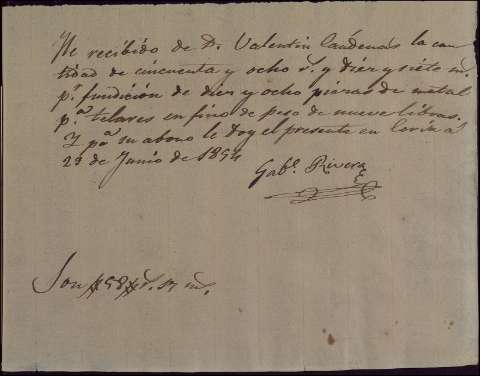 He recibido de D. Valentin Cárdenas la can
tidad de cincuenta y ocho r.s y diez y siete m.s
p.r fundicion de diez y ocho piezas de metal
p.a telares en fino de peso de nueve libras.
Y p.a su abono le doy el presente en a
de Junio de 1854
Gab.l Rivera
Son #58# r.s 17 m.s